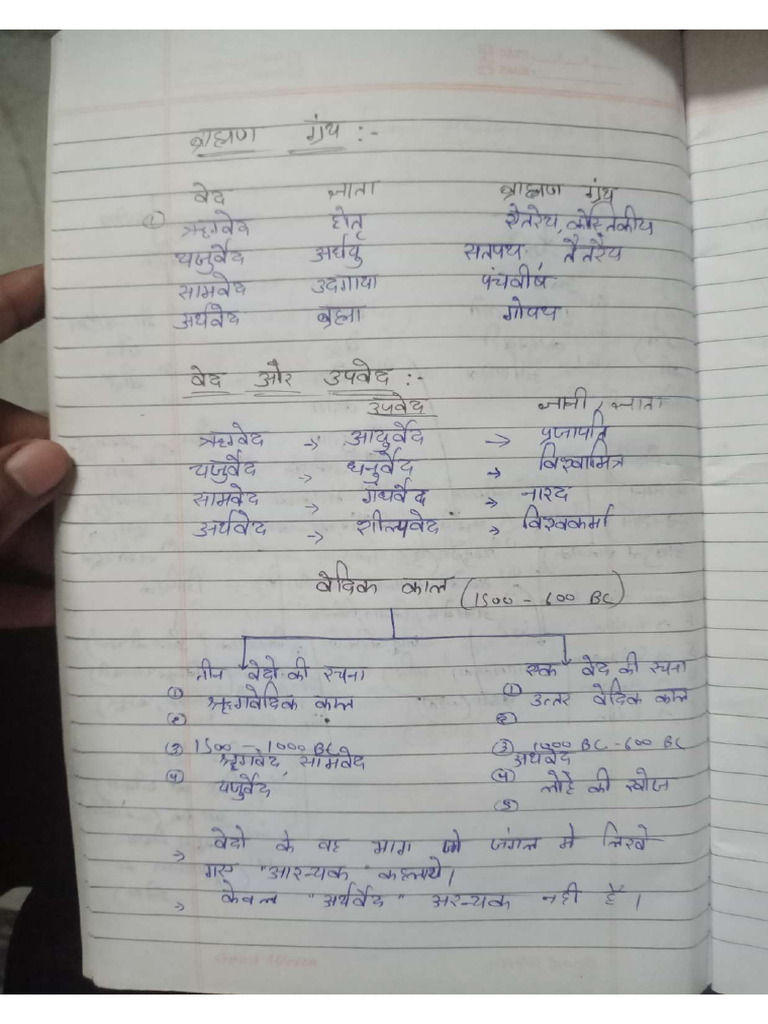 ब्राह्मण ग्रंथ :-
वेद ज्ञाता ब्राह्मण ग्रंथ
① ऋग्वेद होतृ ऐतरेय, कौस्तिकीय
यजुर्वेद अर्धयु सतपथ, तैतरेय
सामवेद उदगाया पंचवीष
अर्थवेद ब्रह्मा गोपथ
वेद और उपवेद :-
उपवेद ज्ञानी / ज्ञाता
ऋग्वेद → आयुर्वेद → प्रजापति
यजुर्वेद → धनुर्वेद → विश्वामित्र
सामवेद → गंधर्वेद → नारद
अर्थवेद → शील्पवेद → विश्वकर्मा
वेदिक काल (1500 - 600 BC)
तीन वेदो की रचना एक वेद की रचना
① ऋगवेदिक काल ① उत्तर वेदिक काल
② ②
③ 1500 - 1000 BC ③ 1000 BC - 600 BC
ऋगवेद, सामवेद अर्थवेद
④ यजुर्वेद ④ लोहे की खोज
⑤
→ वेदो के वह भाग जो जंगल मे लिखे
गए "आरन्यक" कहलाये।
→ केवल "अर्थर्वेद" अरन्यक नही है।